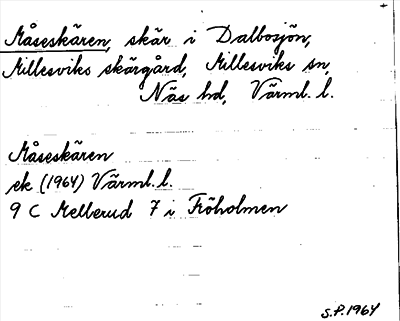 Måseskären, skär i Dalbosjön,
Millesviks skärgård, Millesviks sn,
Näs hd, Värml. l.
Måseskären
ek (1964) Värml. l.
9 C Mellerud 7 i Fröholmen
S.P. 1964